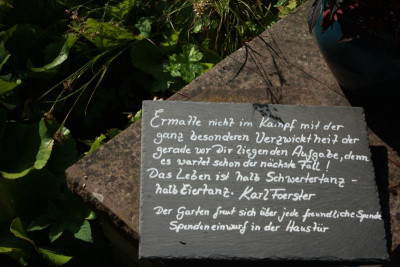 Ermatte nicht im Kampf mit der
ganz besonderen Verzwicktheit der
gerade vor Dir liegenden Aufgabe, denn
es wartet schon der nächste Fall!
Das Leben ist halb Schwertertanz -
halb Eiertanz. Karl Foerster
Der Garten freut sich über jede freundliche Spende
Spendeneinwurf in der Haustür